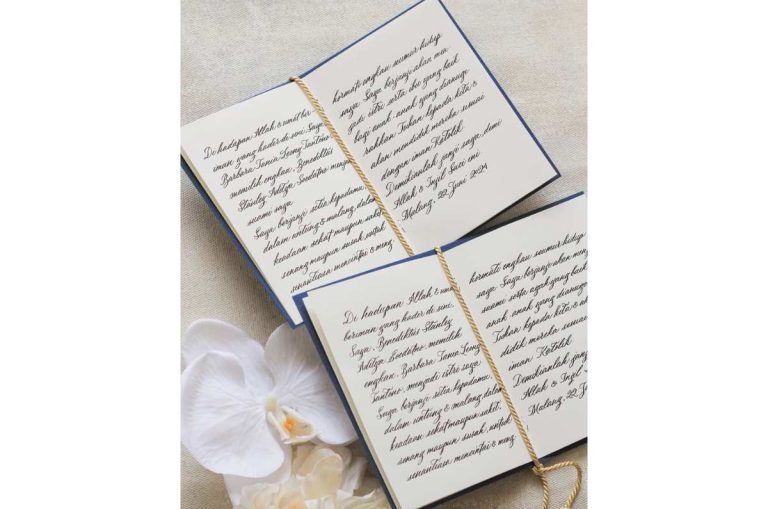 Di hadapan Allah & umat ber
iman yang hadir di sini, Saya
Barbara Tania Leony Tantono
memilih engkau, Benediktus
Stanley Aditja Soedotno menjadi
suami saya.
Saya berjanji setia kepadamu
dalam untung & malang dalam
keadaan sehat maupun sakit,
senang maupun susah, untuk
senantiasa mencintai & meng
hormati engkau seumur hidup
saya. Saya berjanji akan men
jadi istri serta ibu yang baik
bagi anak-anak yang dianuge
rahkan Tuhan kepada kita &
akan mendidik mereka sesuai
dengan iman Katolik.
Demikianlah janji saya, demi
Allah & Injil Suci ini
Malang, 22 Juni, 2024
Di hadapan Allah & umat
beriman yang hadir di sini,
Saya, Benediktus Stanley
Aditja Soedotno, memilih
engkau, Barbara Tania Leony
Tantono, menjadi istri saya
Saya berjanji setia kepadamu
dalam untung & malang dalam
keadaan sehat maupun sakit,
senang maupun susah, untuk
senantiasa mencintai & meng
hormati engkau seumur hidup
saya. Saya berjanji akan menj
suami serta ayah yang baik
anak-anak yang dianuge
Tuhan kepada kita &
didik mereka sesuai
iman Katolik
Demikianlah janj
Allah & Injil
Malang, 22